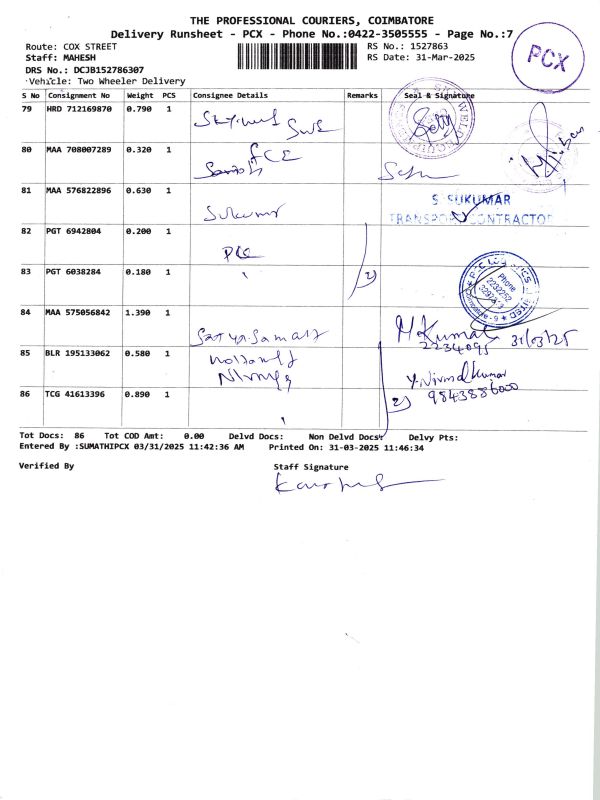 THE PROFESSIONAL COURIERS, COIMBATORE
Delivery Runsheet - PCX - Phone No.:0422-3505555 - Page No.:7
Route: COX STREET
RS No.: 1527863
Staff: MAHESH
RS Date: 31-Mar-2025
DRS No.: DCJB152786307
Vehicle: Two Wheeler Delivery
PCX
S No Consignment No Weight PCS Consignee Details Remarks Seal & Signature
79 HRD 712169870 0.790 1
80 MAA 708007289 0.320 1
81 MAA 576822896 0.630 1 Sukumar
S. SUKUMAR
TRANSPORT CONTRACTOR
82 PGT 6942804 0.200 1
83 PGT 6038284 0.180 1 2)
Phone
2232252
84 MAA 575056842 1.390 1 H Kumar
2234095 31/03/25
85 BLR 195133062 0.580 1
Y. Nirmal Kumar
86 TCG 41613396 0.890 1 2) 9843886000
Tot Docs: 86 Tot COD Amt: 0.00 Delvd Docs: Non Delvd Docs: Delvy Pts:
Entered By :SUMATHIPCX 03/31/2025 11:42:36 AM Printed On: 31-03-2025 11:46:34
Verified By Staff Signature